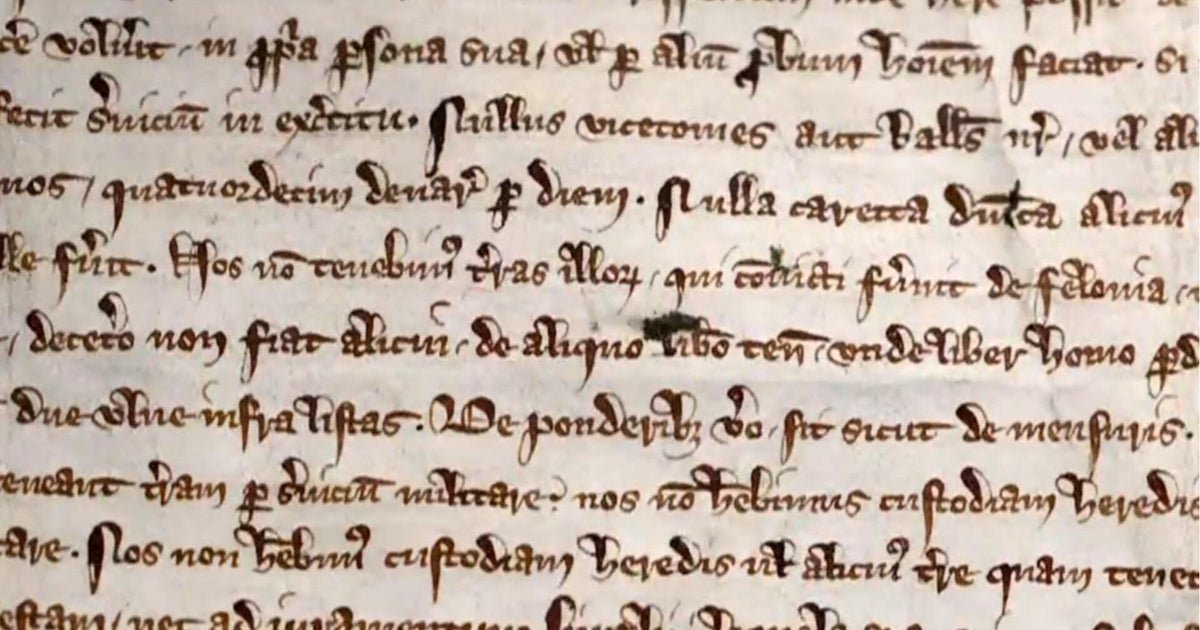 voluit in ꝓpͥa ꝑsona sua, vel ꝑ aliū ꝓbum hoiēm faciat. Si
fecit ẜuiciū in exercitu. Nullus vicecomes aut Ballꝰs nr̄, vel ali
nos, quatuordecim denar̄ ꝑ diem. Nulla caretta dn̄ica alicuiꝰ
fuͥit. Nos nō tenebimꝰ tr̄ras illoꝝ, qui cōuicti fuͥint de felonia,
decetͤo non fiat alicui, de aliquo libō ten̄, vnde liber homo ꝑd
due vlne infra listas. De ponderibꝫ vͦo, sit sicut de mensuris.
eneant tr̄ram ꝑ ẜuiciū militare: nos nō hēbimus custodiam heredis
tare. Nos non hēbimꝰ custodiam heredis uel alicuiꝰ tr̄re quam tenet